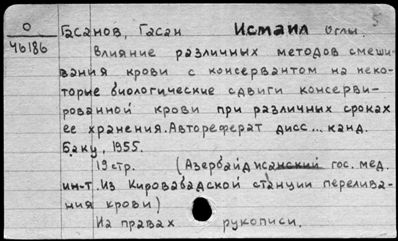 5
О
46186
Гасанов, Гасан Исмаил оглы.
Влияние различных методов смеши-
вания крови с консервантом на неко-
торые биологические сдвиги консерви-
рованной крови при различных сроках
ее хранения. Автореферат дисс... канд.
Баку, 1955.
19 стр. (Азербайджанский гос. мед.
ин-т. Из Кировабадской станции перелива-
ния крови)
На правах рукописи.